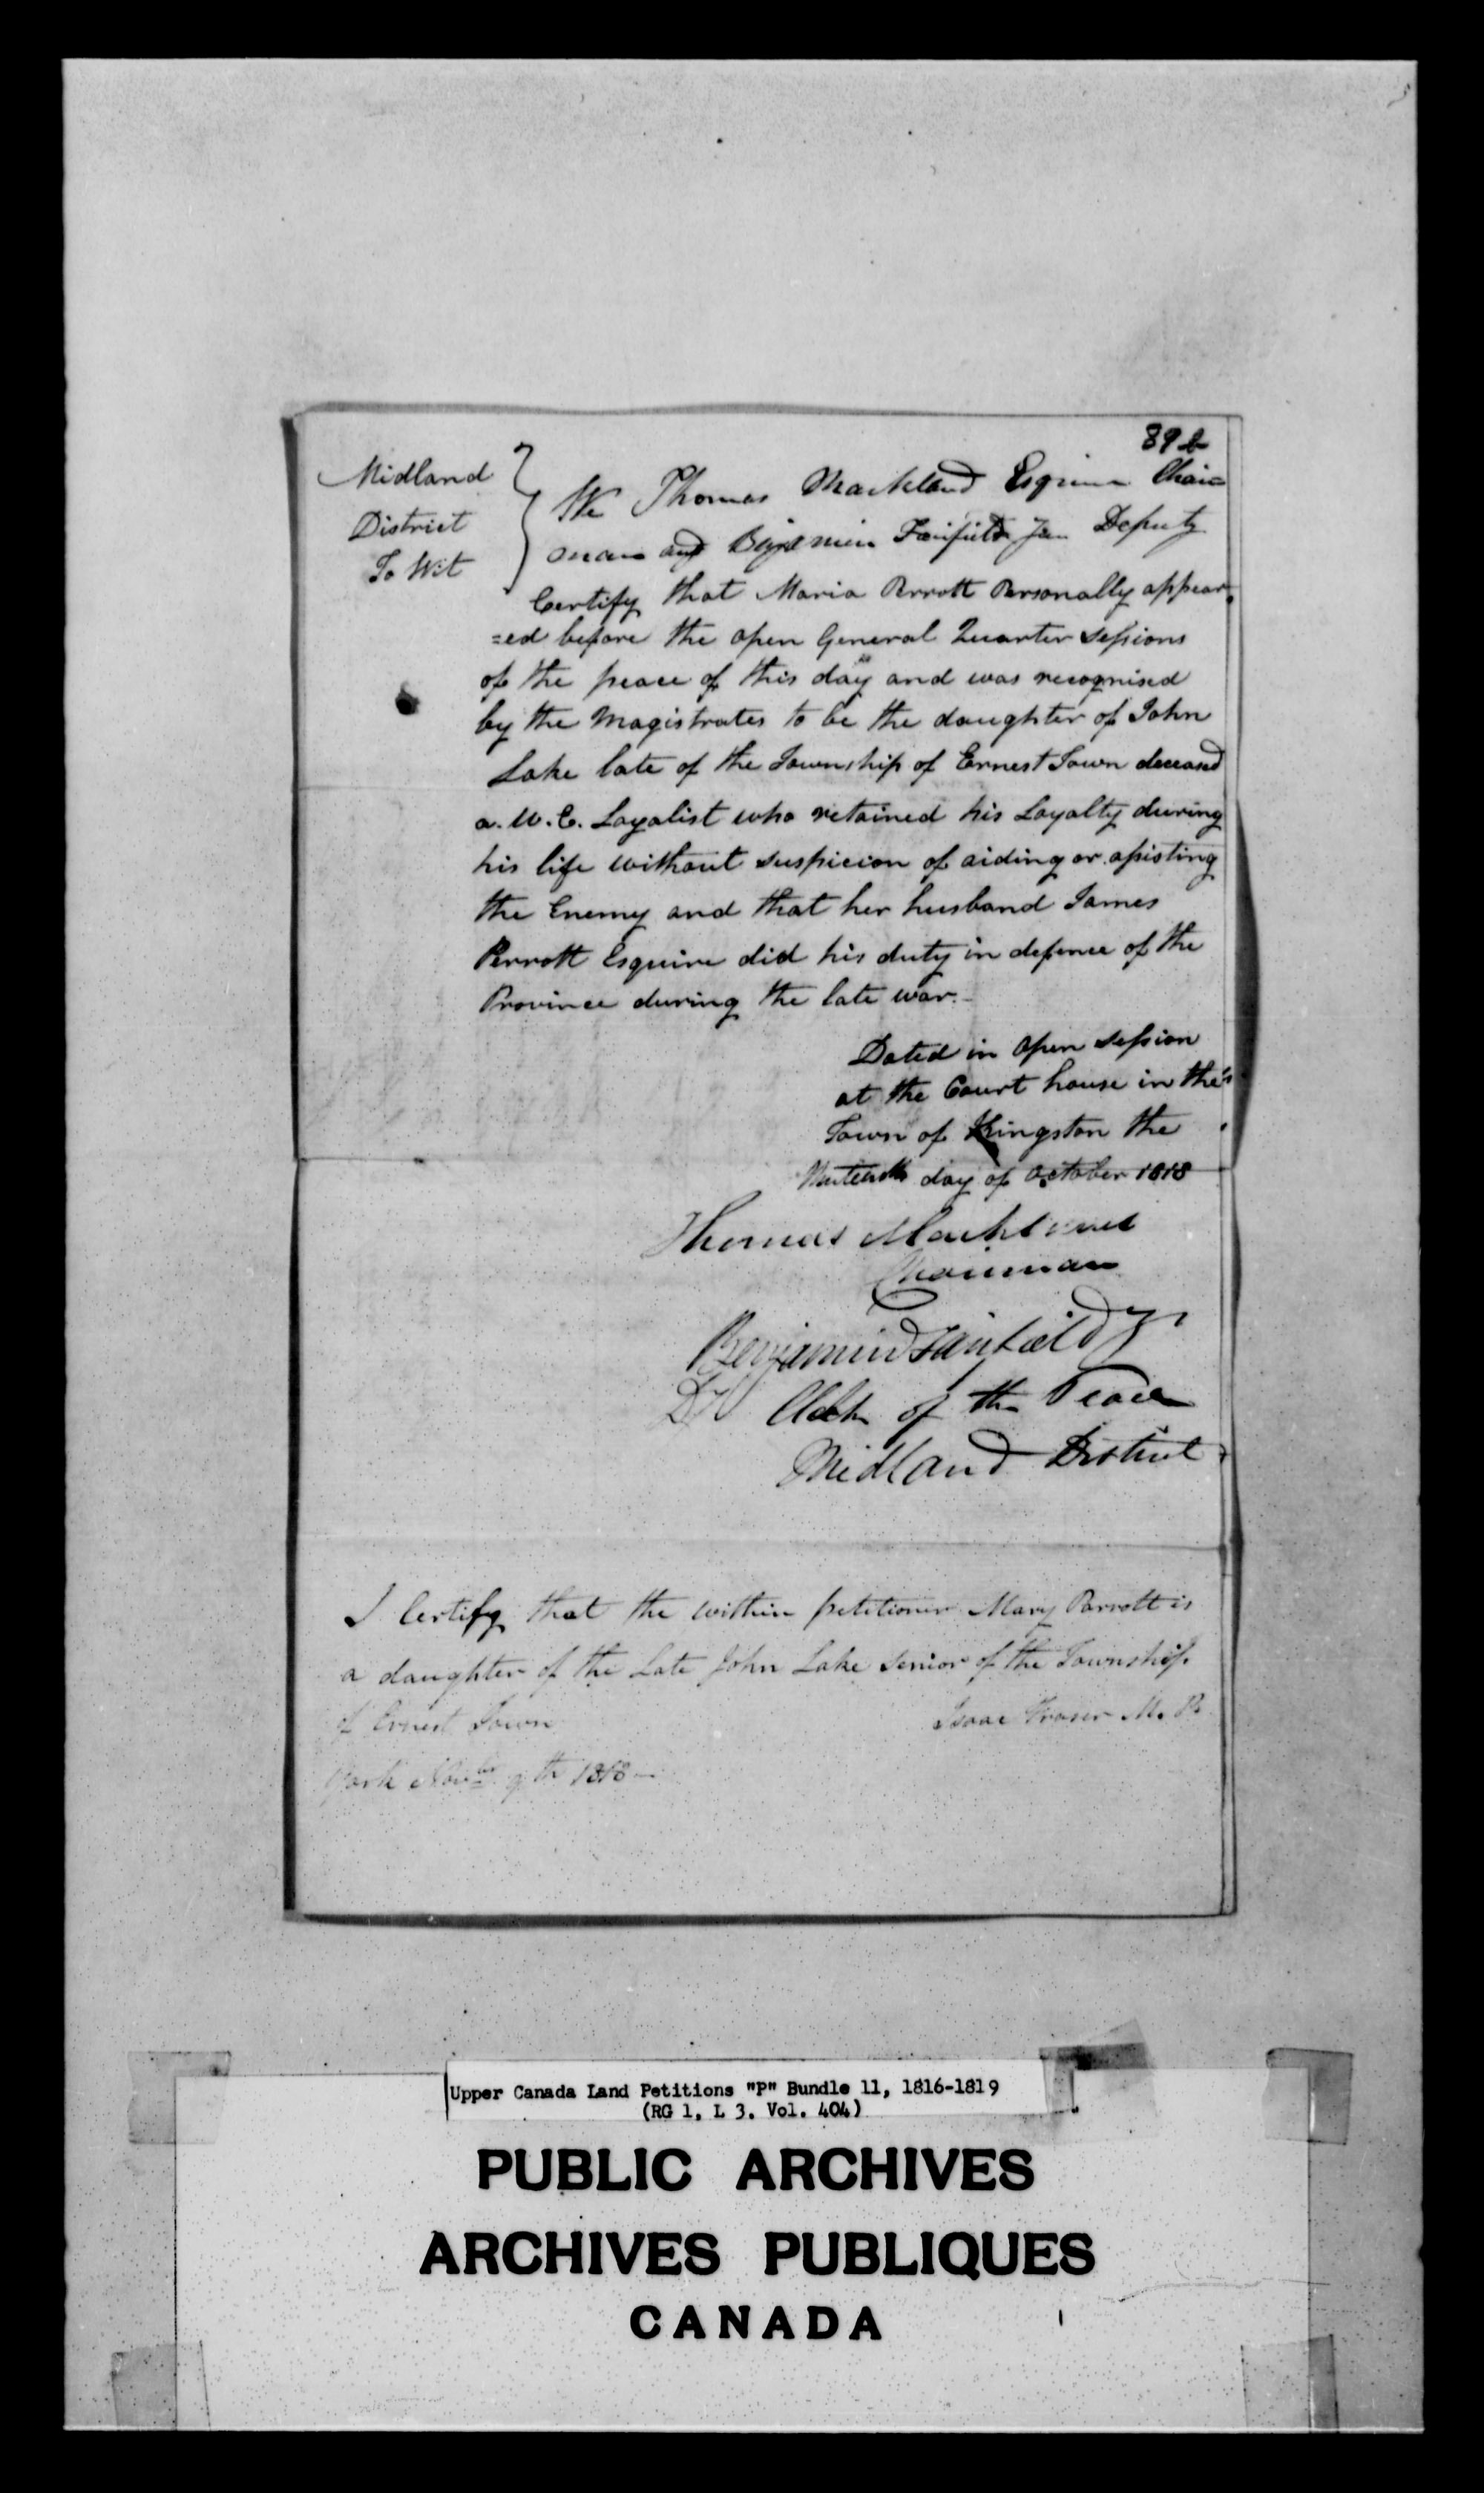 89b
Midland
District
To Wit
We Thomas Markland Esquire Chair=
man and Benjamin Fairfield Jun Deputy
Certify that Maria Perrott Personally appear
=ed before the open General Quarter Sessions
of the peace of this day and was recognised
by the Magistrates to be the daughter of John
Lake late of the Township of Ernest Town deceased
a. U. E. Loyalist who retained his Loyalty during
his life without suspicion of aiding or assisting
the Enemy and that her husband James
Perrott Esquire did his duty in defence of the
Province during the late war.-
Dated in Open Session
at the Court house in the
Town of Kingston the
day of October 1818
Thomas Markland
Chairman
Benjamin Fairfield Jr
Dy Clerk of the Peace
Midland District
I Certify that the within petitioner Mary Parrott is
a daughter of the Late John Lake Senior of the Township
of Ernest Town
Isaac Fraser M. P.
York Novbr 9th 1818-
Upper Canada Land Petitions "P" Bundle 11, 1816-1819
(RG 1, L 3, Vol. 404)
PUBLIC ARCHIVES
ARCHIVES PUBLIQUES
CANADA